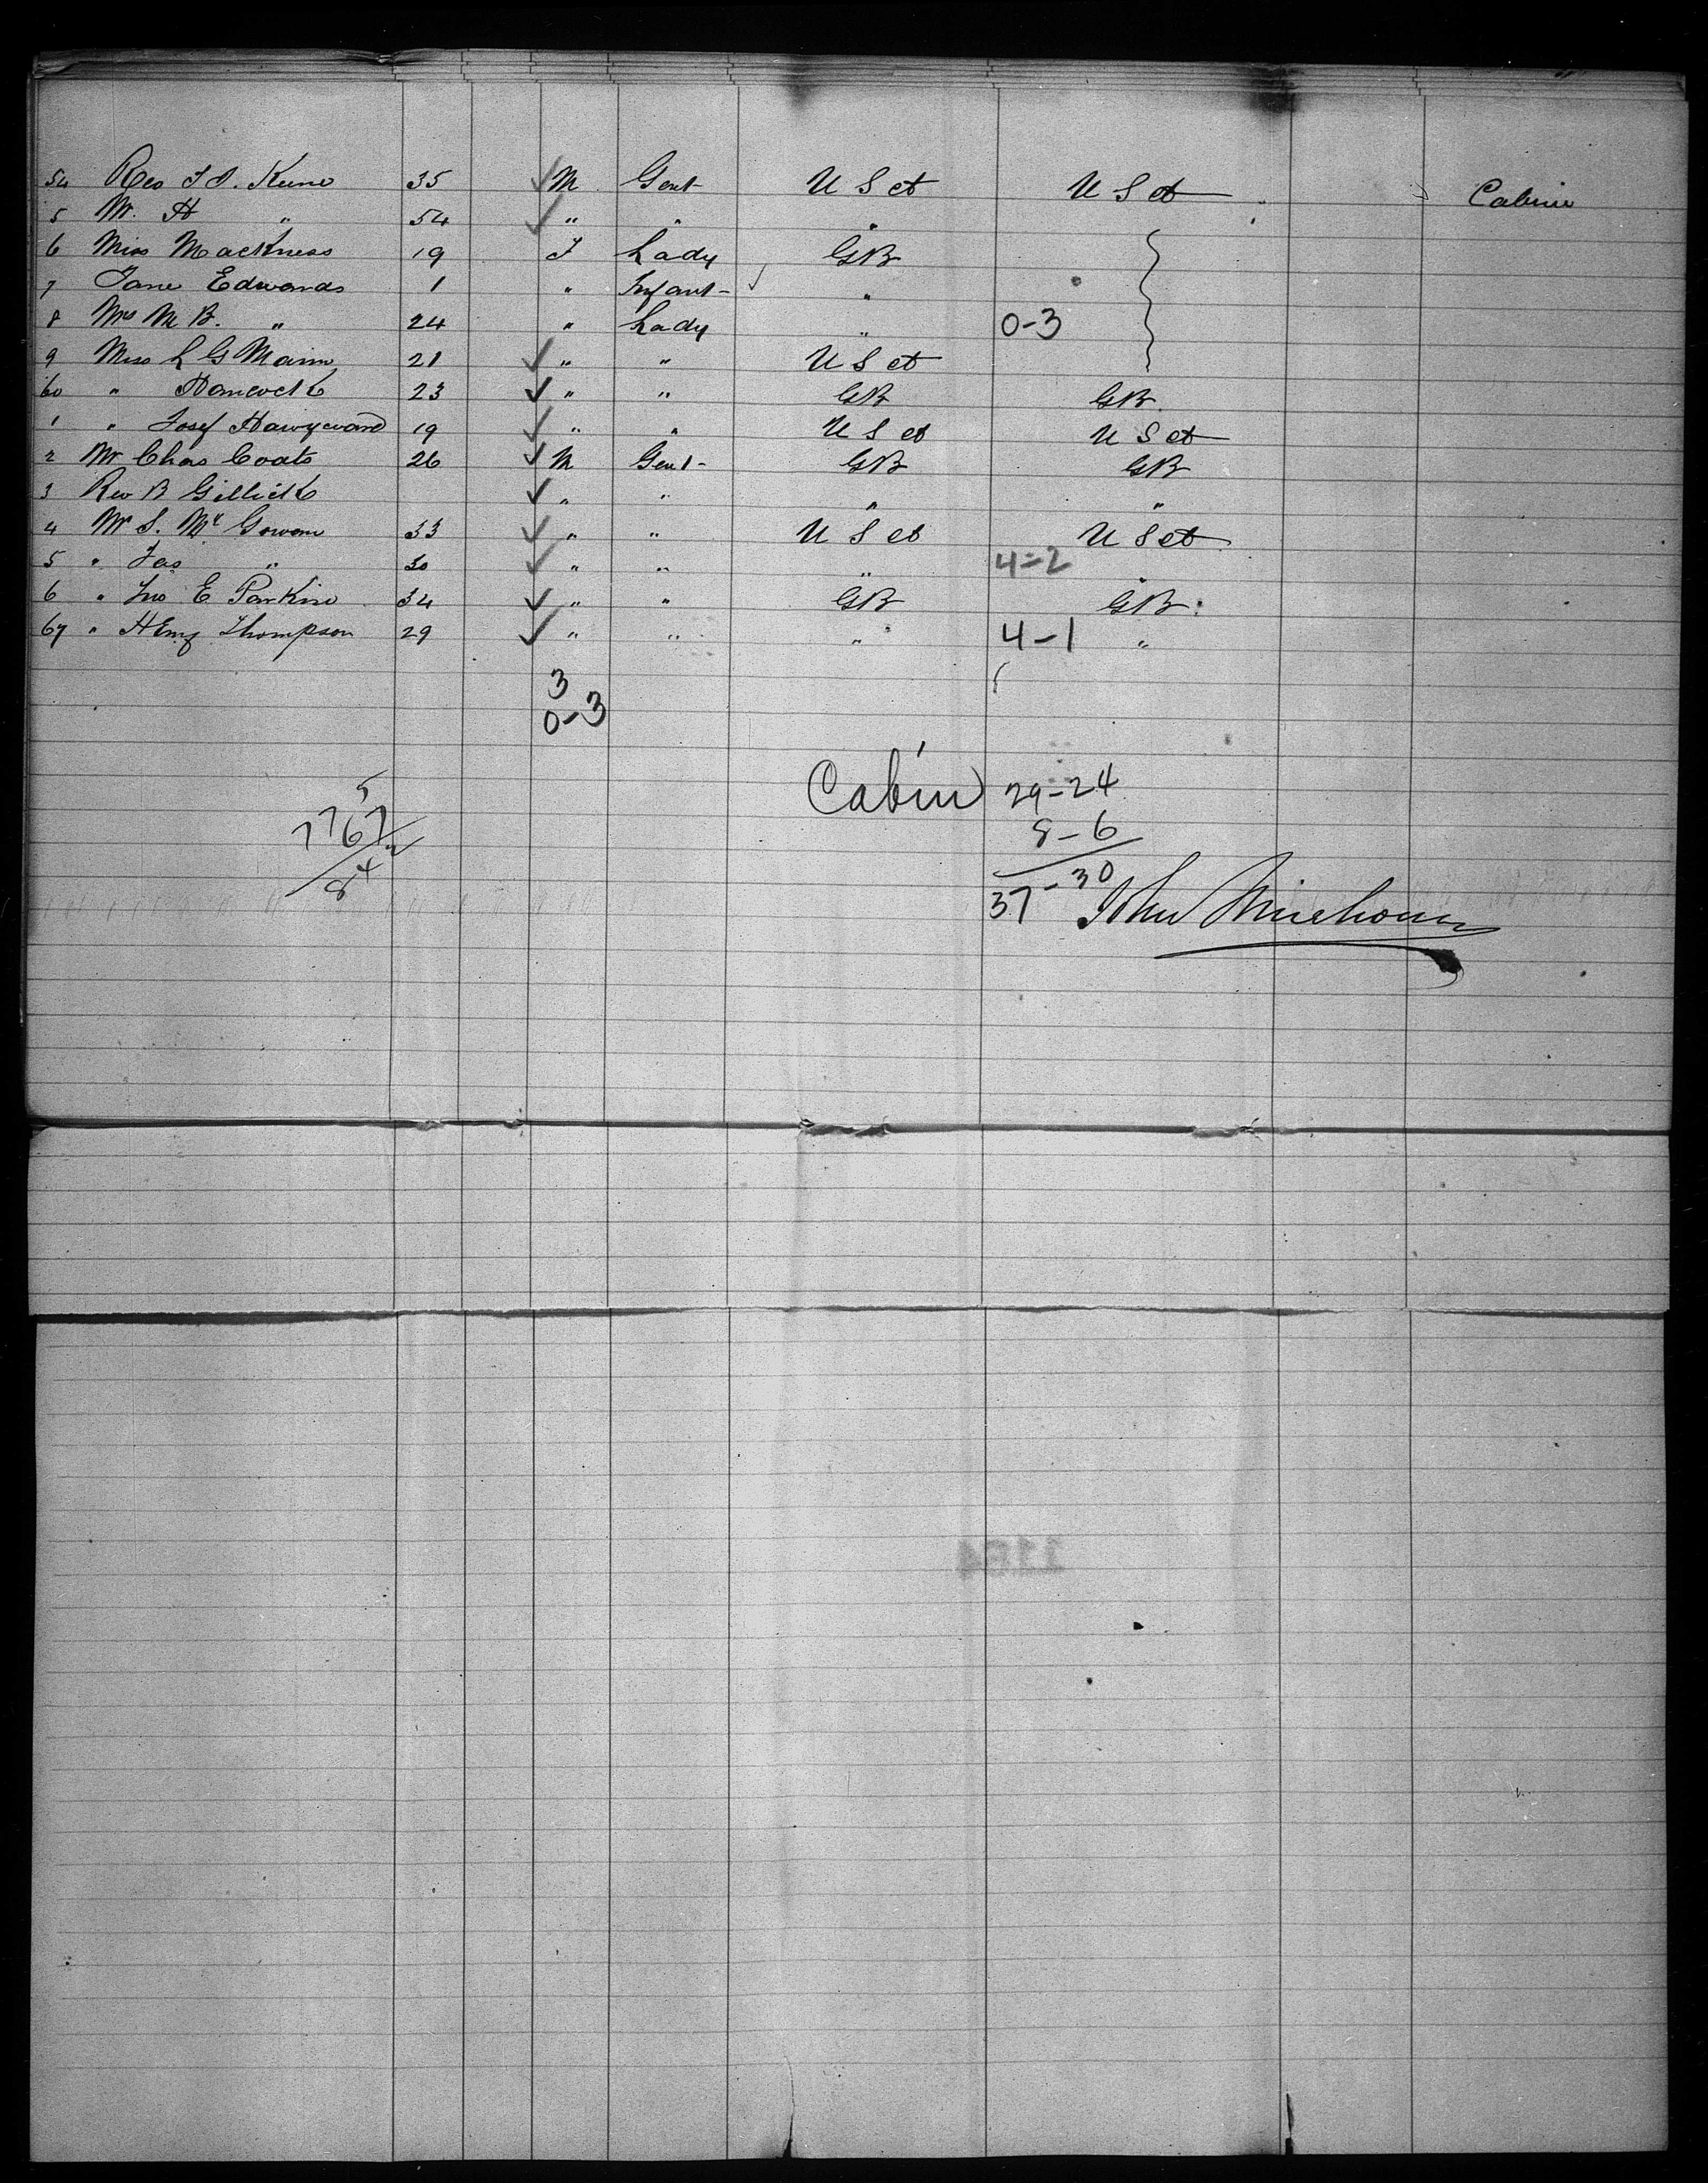 54 Rev J J. Keene 35 M Gent USA USA Cabin
5 Mr. H " 54 " " "
6 Miss Mackness 19 F Lady GB
7 Jane Edwards 1 " Infant "
8 Mrs M B. " 24 " Lady " 0-3
9 Miss L G Mann 21 " " USA
60 " Hancock 23 " " GB GB.
1 " Josef 19 " " USA USA
2 Mr Chas Coats 26 M Gent GB GB
3 Rev B Gillick " " " "
4 Mr S. Mc Gowan 33 " " USA USA
5 " Jas " 30 " " " 4-2 "
6 " Jno E Parkin 34 " " GB GB
67 " Thompson 29 " " " 4-1 "
3
0-3
Cabin 29-24
8-6
37-30 John
1164